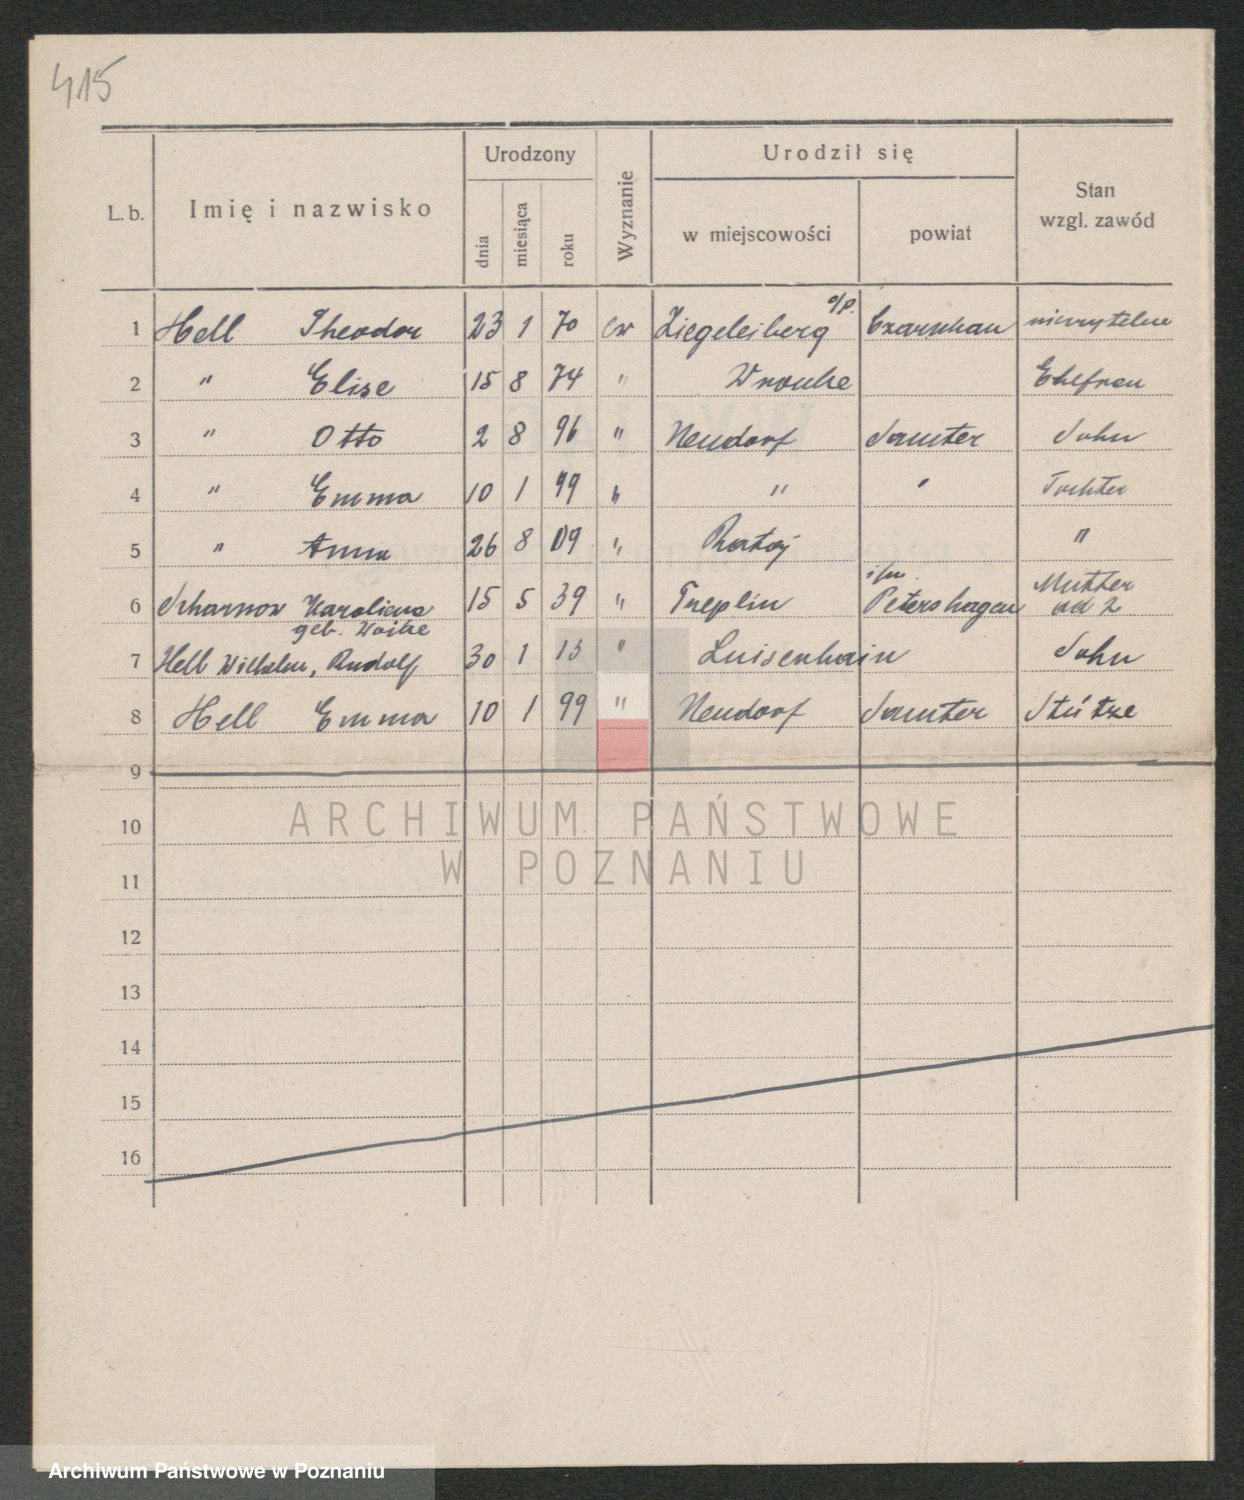 415
L. b. Imię i nazwisko Urodzony dnia miesiąca roku Wyznanie Urodził się w miejscowości powiat Stan wzgl. zawód
1 Hell Theodor 23 1 70 ew Ziegeleiberg o/p. Czarnikau
2 " Elise 15 8 74 " Wronke Ehefrau
3 " Otto 2 8 96 " Neudorf Samter Sohn
4 " Emma 10 1 99 " " " Tochter
5 " Anna 26 8 09 " Rataj "
6 Scharnow Karolina geb. Woike 15 5 39 " Treplin Petershagen Mutter ad 2
7 Hell Wilhelm, Rudolf 30 1 15 " Luisenhain Sohn
8 Hell Emma 10 1 99 " Neudorf Samter Stütze
9
10
11
12
13
14
15
16
ARCHIWUM PAŃSTWOWE
W POZNANIU
Archiwum Państwowe w Poznaniu